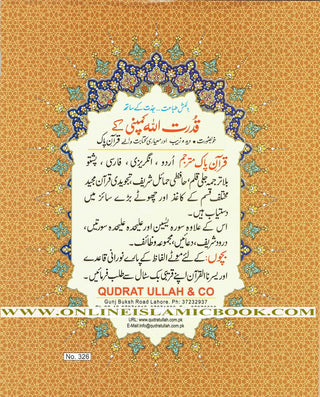 دلکش طباعت ۔ جدت کے ساتھ
قدرت اللہ کمپنی کے
خوبصورت • دیدہ زیب اور معیاری کتابت والے قرآن پاک
قرآن پاک مترجم اُردو ، انگریزی ، فارسی ، پشتو
بلا ترجمہ جلی قلم حافظی حمائل شریف، تجویدی قرآن مجید
مختلف قسم کے کاغذ اور چھوٹے بڑے سائز میں
دستیاب ہیں۔
اس کے علاوہ سورہ یٰسین اور علیحدہ علیحدہ سورتیں،
درود شریف، دعائیں، مجموعہ وظائف۔
بچوں: کے لئے موٹے الفاظ کے پارے نورانی قاعدے
اور یسرنا القرآن اپنے قریبی بک سٹال سے طلب فرمائیں۔
QUDRAT ULLAH & CO
Gunj Buksh Road Lahore. Ph: 37232937
WWW.ONLINEISLAMICBOOK.COM
URL: www.qudratullah.com.pk
E-Mail:info@qudratullah.com.pk
No. 326